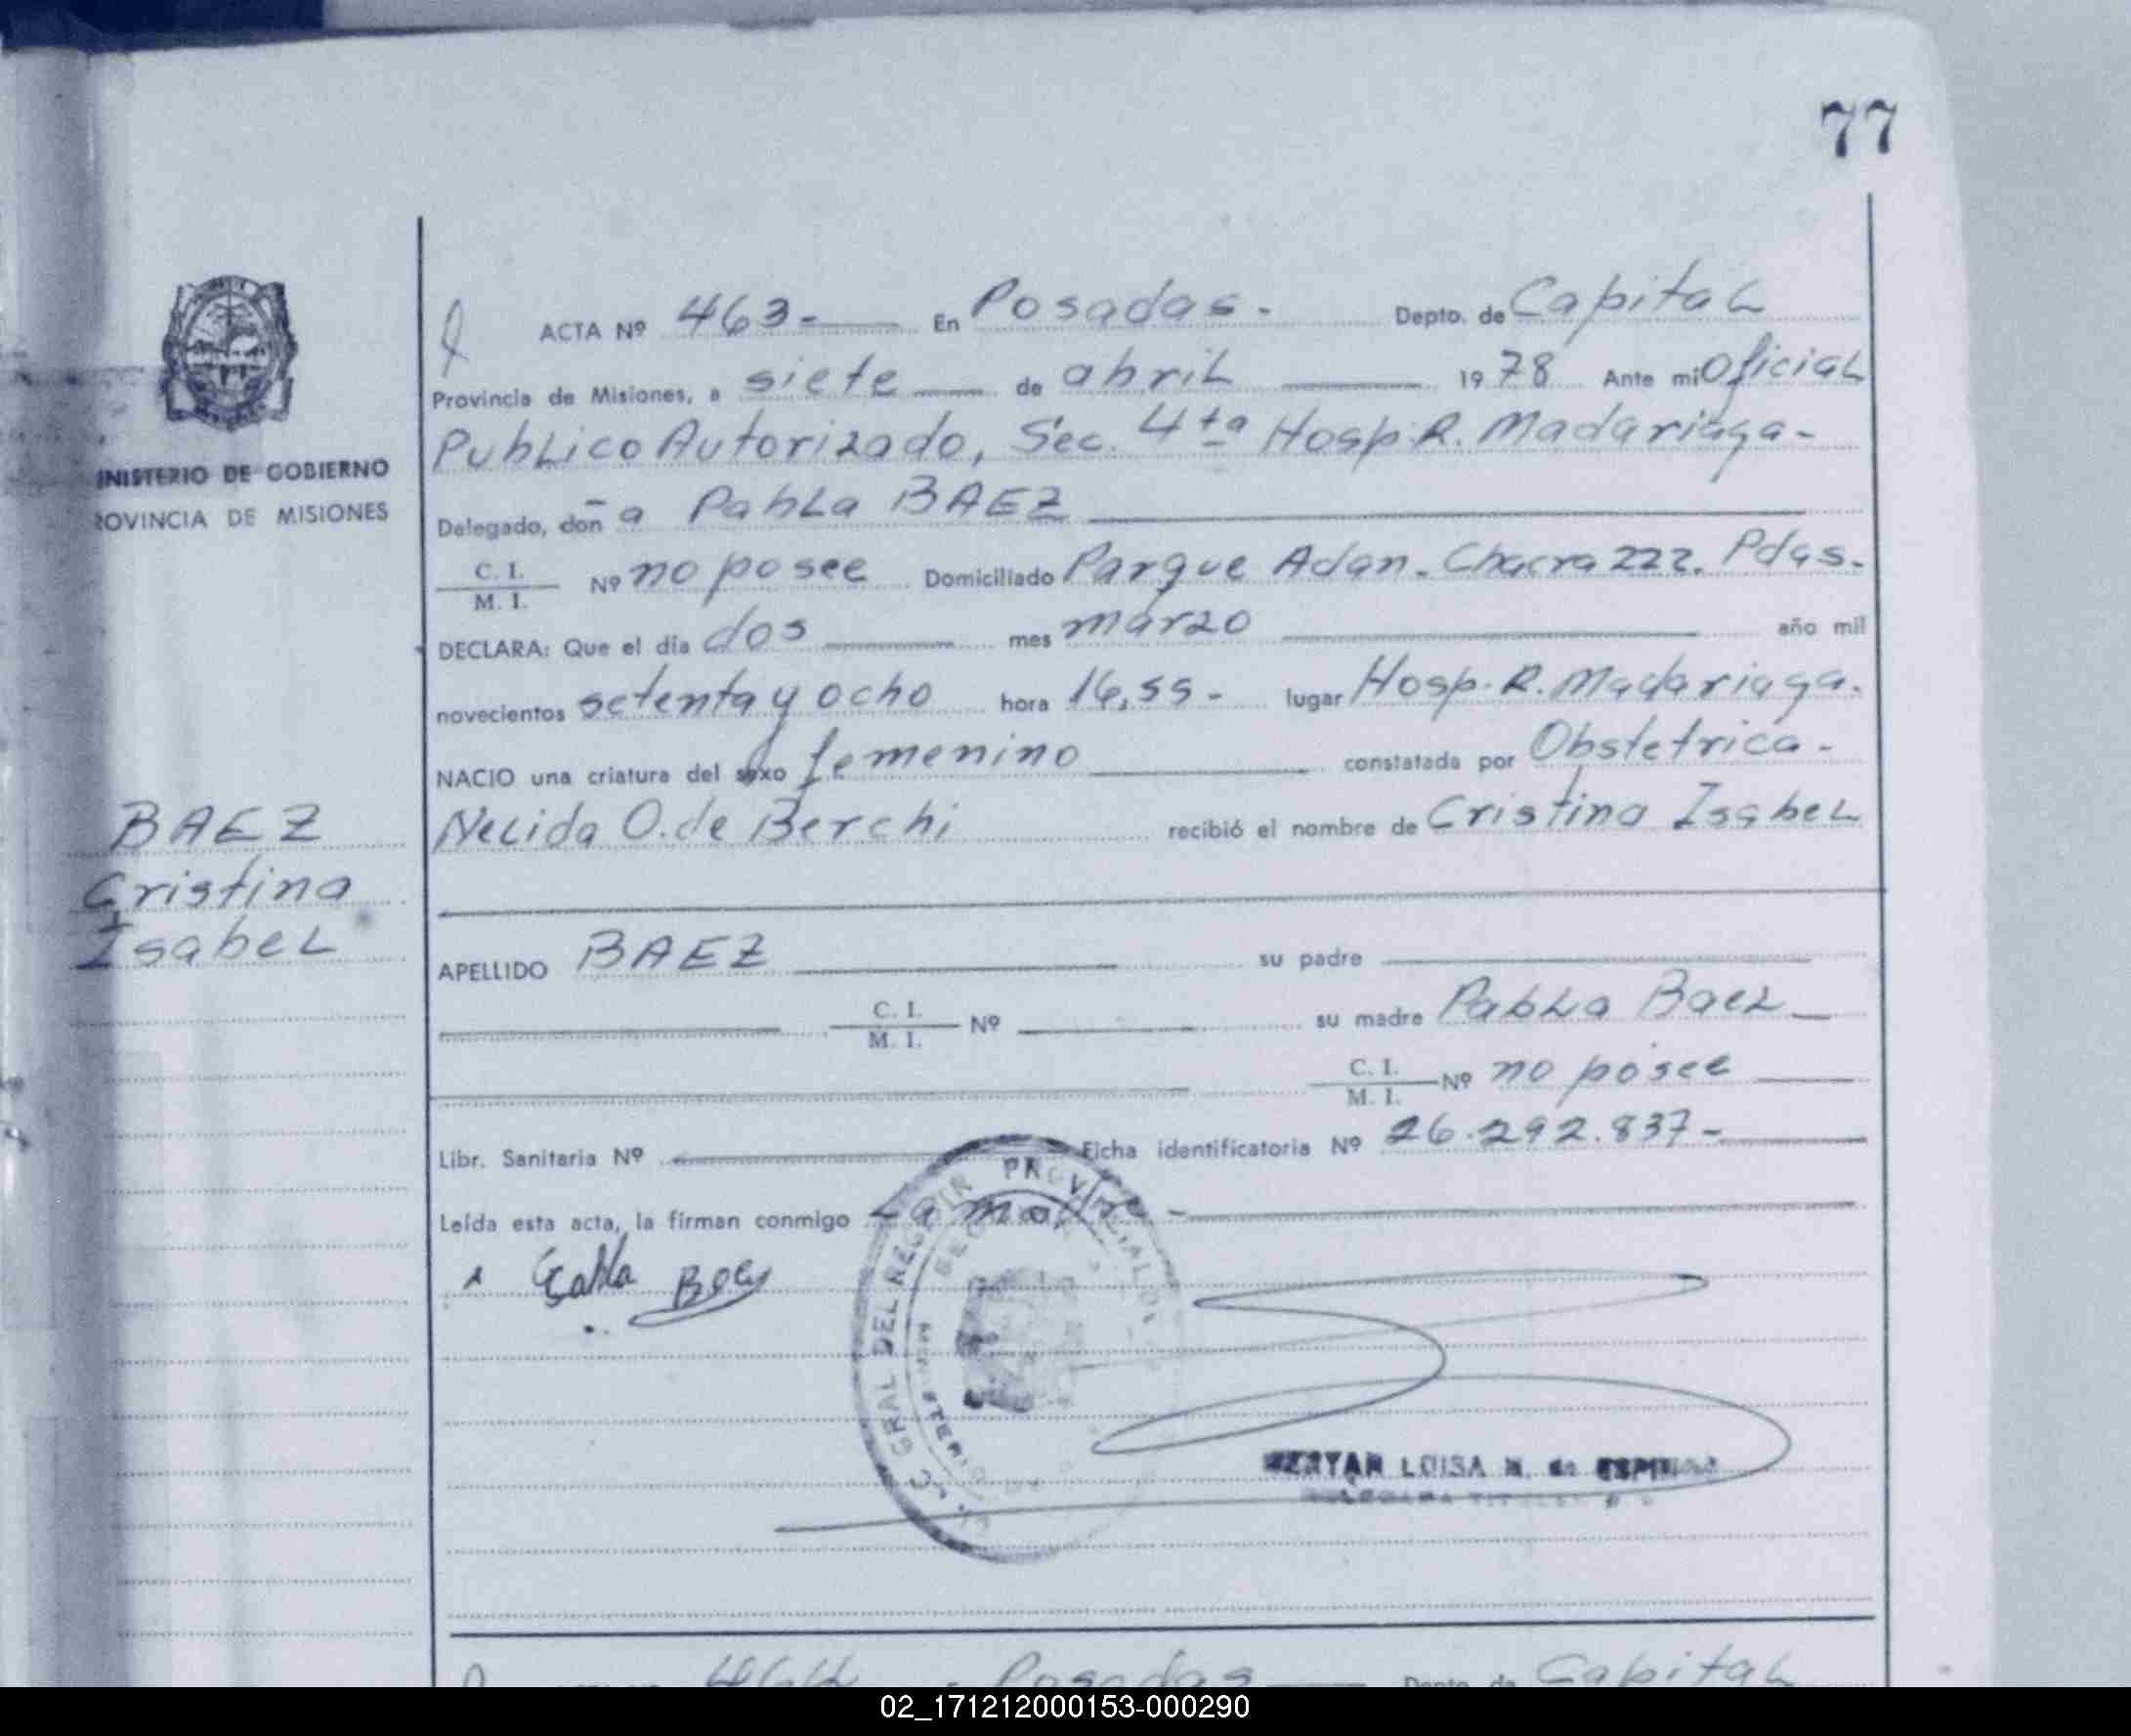 77
ACTA Nº 463- En Posadas- Depto. de Capital
Provincia de Misiones, a siete de abril 1978 Ante mi Oficial
Publico Autorizado, Sec. 4ta Hosp. R. Madariaga-
Delegado, doña Pabla BAEZ
C. I.
M. I. Nº no posee Domiciliado Parque Adan. Chacra 222. Pdas.
DECLARA: Que el día dos mes marzo año mil
novecientos setenta y ocho hora 16,55- lugar Hosp. R. Madariaga.
NACIO una criatura del sexo femenino constatada por Obstetrica-
Nelida O. de Berchi recibió el nombre de Cristina Isabel
APELLIDO BAEZ su padre
C. I.
M. I. Nº su madre Pabla Baez
C. I.
M. I. Nº no posee
Libr. Sanitaria Nº Ficha identificatoria Nº 26.292.837-
Leída esta acta, la firman conmigo La madre-
Pabla Baez
LUISA
INISTERIO DE GOBIERNO
ROVINCIA DE MISIONES
BAEZ
Cristina
Isabel
GRAL DEL REG PROVINCIAL
464 Posadas Depto de Capital
02_171212000153-000290